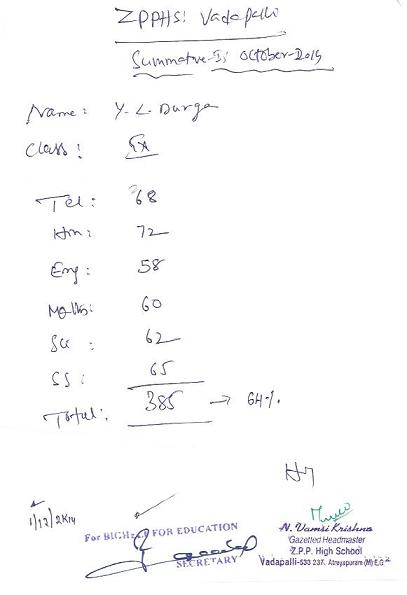 ZPPHS: Vadapalli
Summative-I: October-2014
Name: Y. L. Durga
Class: IX
Tel: 68
Hin: 72
Eng: 58
Maths: 60
Sci: 62
SS: 65
Total: 385 → 64%
1/12/2K14
For BIGHELP FOR EDUCATION
SECRETARY
N. Vamsi Krishna
Gazetted Headmaster
Z.P.P. High School
Vadapalli-533 237, Atreyapuram (M) E.G